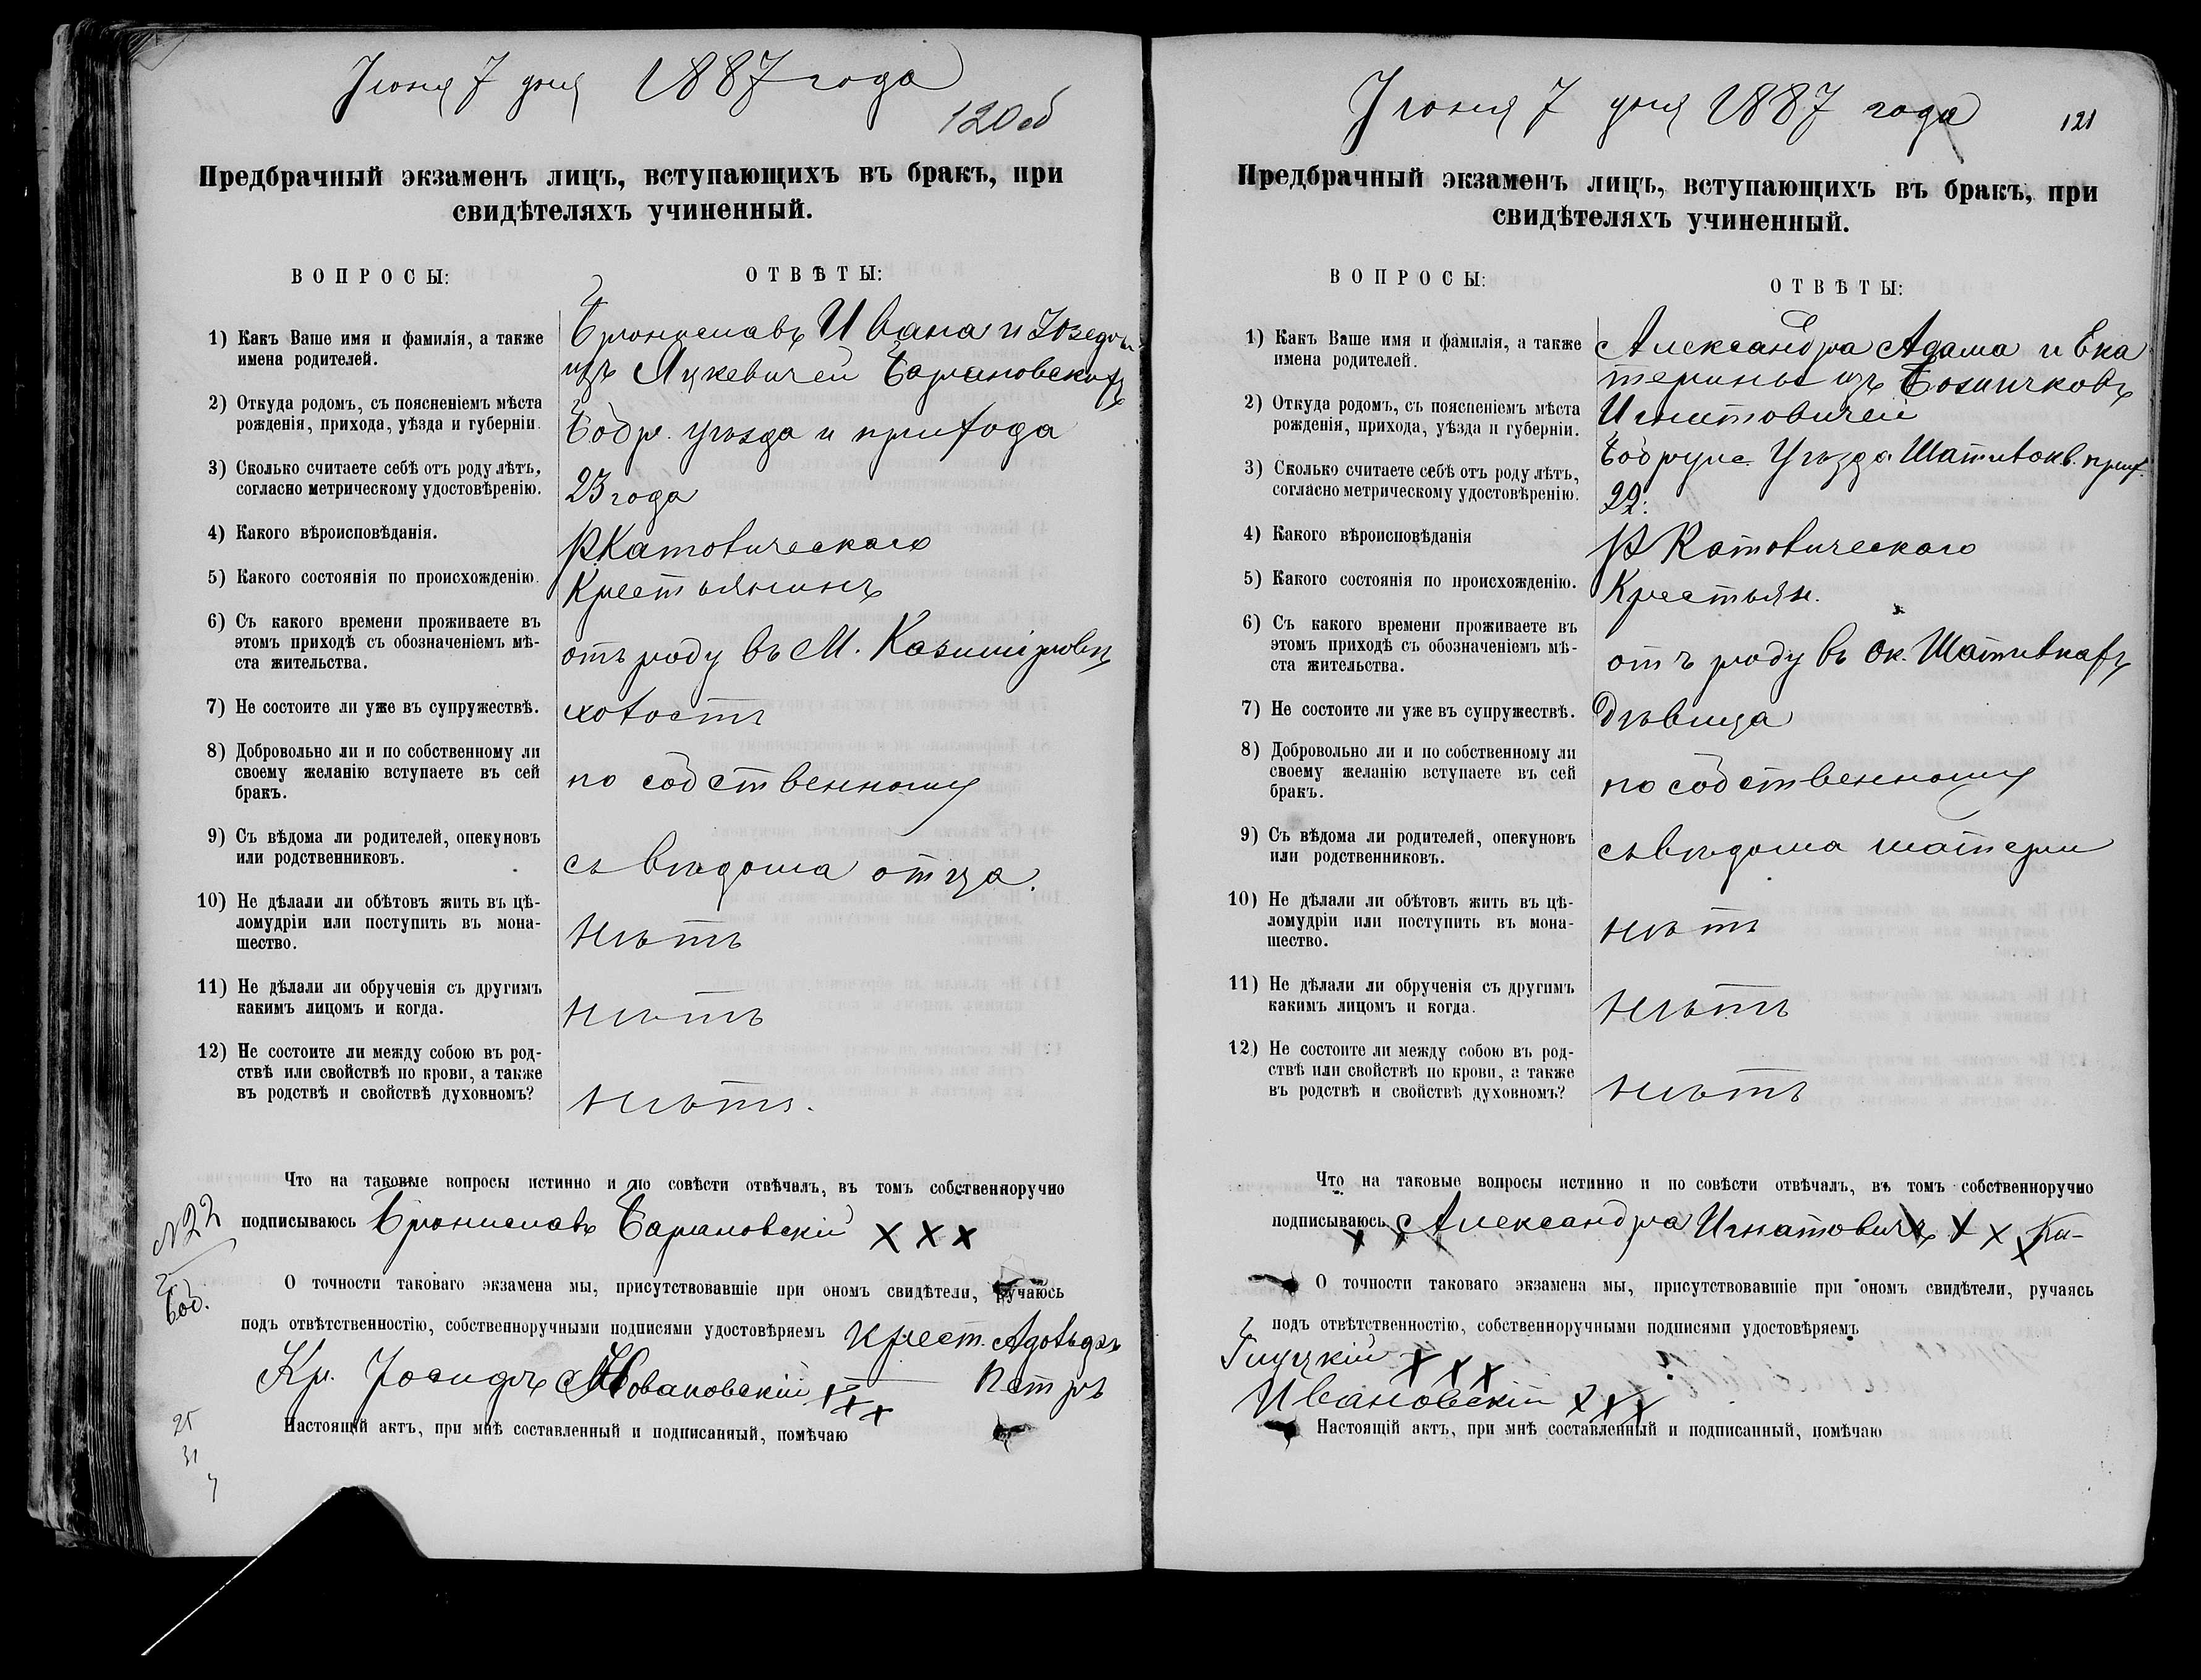 Іюня 7 дня 1887 года
120 об
Предбрачный экзаменъ лицъ, вступающихъ въ бракъ, при
свидѣтеляхъ учиненный.
ВОПРОСЫ:
ОТВѢТЫ:
1) Какъ Ваше имя и фамилія, а также
имена родителей.
Брониславъ Ивана и
изъ Яцкевичей Барановскихъ
2) Откуда родомъ, съ поясненіемъ мѣста
рожденія, прихода, уѣзда и губерніи.
Бобр. уѣзда и прихода
3) Сколько считаете себѣ отъ роду лѣтъ,
согласно метрическому удостовѣренію.
23 года
4) Какого вѣроисповѣданія.
Р Католическаго
5) Какого состоянія по происхожденію.
Крестьянинъ
6) Съ какого времени проживаете въ
этомъ приходѣ съ обозначеніемъ мѣ-
ста жительства.
отъ роду въ М.
7) Не состоите ли уже въ супружествѣ.
холостъ
8) Добровольно ли и по собственному ли
своему желанію вступаете въ сей
бракъ.
по собственному
9) Съ вѣдома ли родителей, опекуновъ
или родственниковъ.
съ вѣдома отца.
10) Не дѣлали ли обѣтовъ жить въ цѣ-
ломудріи или поступить въ мона-
шество.
нѣтъ
11) Не дѣлали ли обрученія съ другимъ
какимъ лицомъ и когда.
нѣтъ
12) Не состоите ли между собою въ род-
ствѣ или свойствѣ по крови, а также
въ родствѣ и свойствѣ духовномъ?
нѣтъ.
Что на таковые вопросы истинно и по совѣсти отвѣчалъ, въ томъ собственноручно
подписываюсь Брониславъ Барановскій х х х
N22
Боб.
О точности таковаго экзамена мы, присутствовавшіе при ономъ свидѣтели, ручаюсь
подъ отвѣтственностію, собственноручными подписями удостовѣряемъ Крест. Адольфъ
Кр. Іосифъ х х х Петръ
Настоящій актъ, при мнѣ составленный и подписанный, помѣчаю
25
31
Іюня 7 дня 1887 года
121
Предбрачный экзаменъ лицъ, вступающихъ въ бракъ, при
свидѣтеляхъ учиненный.
ВОПРОСЫ:
ОТВѢТЫ:
1) Какъ Ваше имя и фамилія, а также
имена родителей.
Александра Адама и Ека
терины изъ
Игнатовичей
2) Откуда родомъ, съ поясненіемъ мѣста
рожденія, прихода, уѣзда и губерніи.
Уѣзда прих.
3) Сколько считаете себѣ отъ роду лѣтъ,
согласно метрическому удостовѣренію.
22.
4) Какого вѣроисповѣданія
Р Католическаго
5) Какого состоянія по происхожденію.
Крестьян.
6) Съ какого времени проживаете въ
этомъ приходѣ съ обозначеніемъ мѣ-
ста жительства.
отъ роду въ Ок. Шатилкахъ
7) Не состоите ли уже въ супружествѣ.
Дѣвица
8) Добровольно ли и по собственному ли
своему желанію вступаете въ сей
бракъ.
по собственному
9) Съ вѣдома ли родителей, опекуновъ
или родственниковъ.
съ вѣдома матери
10) Не дѣлали ли обѣтовъ жить въ цѣ-
ломудріи или поступить въ мона-
шество.
нѣтъ
11) Не дѣлали ли обрученія съ другимъ
какимъ лицомъ и когда.
нѣтъ
12) Не состоите ли между собою въ род-
ствѣ или свойствѣ по крови, а также
въ родствѣ и свойствѣ духовномъ?
нѣтъ
Что на таковые вопросы истинно и по совѣсти отвѣчалъ, въ томъ собственноручно
подписываюсь Александра Игнатовичъ х х х
О точности таковаго экзамена мы, присутствовавшіе при ономъ свидѣтели, ручаясь
подъ отвѣтственностію, собственноручными подписями удостовѣряемъ
х х х
Ивановскій х х х
Настоящій актъ, при мнѣ составленный и подписанный, помѣчаю